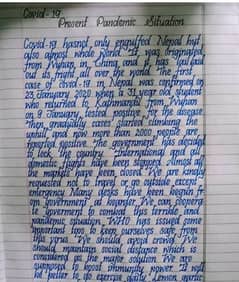 Covid-19
Present Pandemic Situation
Covid-19 hasn't only engulfed Nepal but
also almost whole World. It was originated
from Wuhan, in China and it has spread
out its fright all over the world. The first
case of Covid-19 in Nepal was confirmed on
23 January, 2020 when a 31 year old student
who returned to Kathmandu from Wuhan
on 9 January, tested positive for the disease
Then gradually cases started climbing the
uphill and now more than 2000 people are
reported positive. The government has decided
to lock the country. International and all
domestic flights have been stopped. Almost all
the markets have been closed. We are kindly
requested not to travel or go outside except
emergency. Many days have been begun
government We can cooperate
to government to combat this terrible and
pandemic situation. WHO has issued some
important tips to keep ourselves safe from
this virus. We should avoid crowd. We
should maintain social distance which is
considered as the major solution. We are
supposed to boost immunity power. It will
be better to do exercise daily. Lemon, garlic